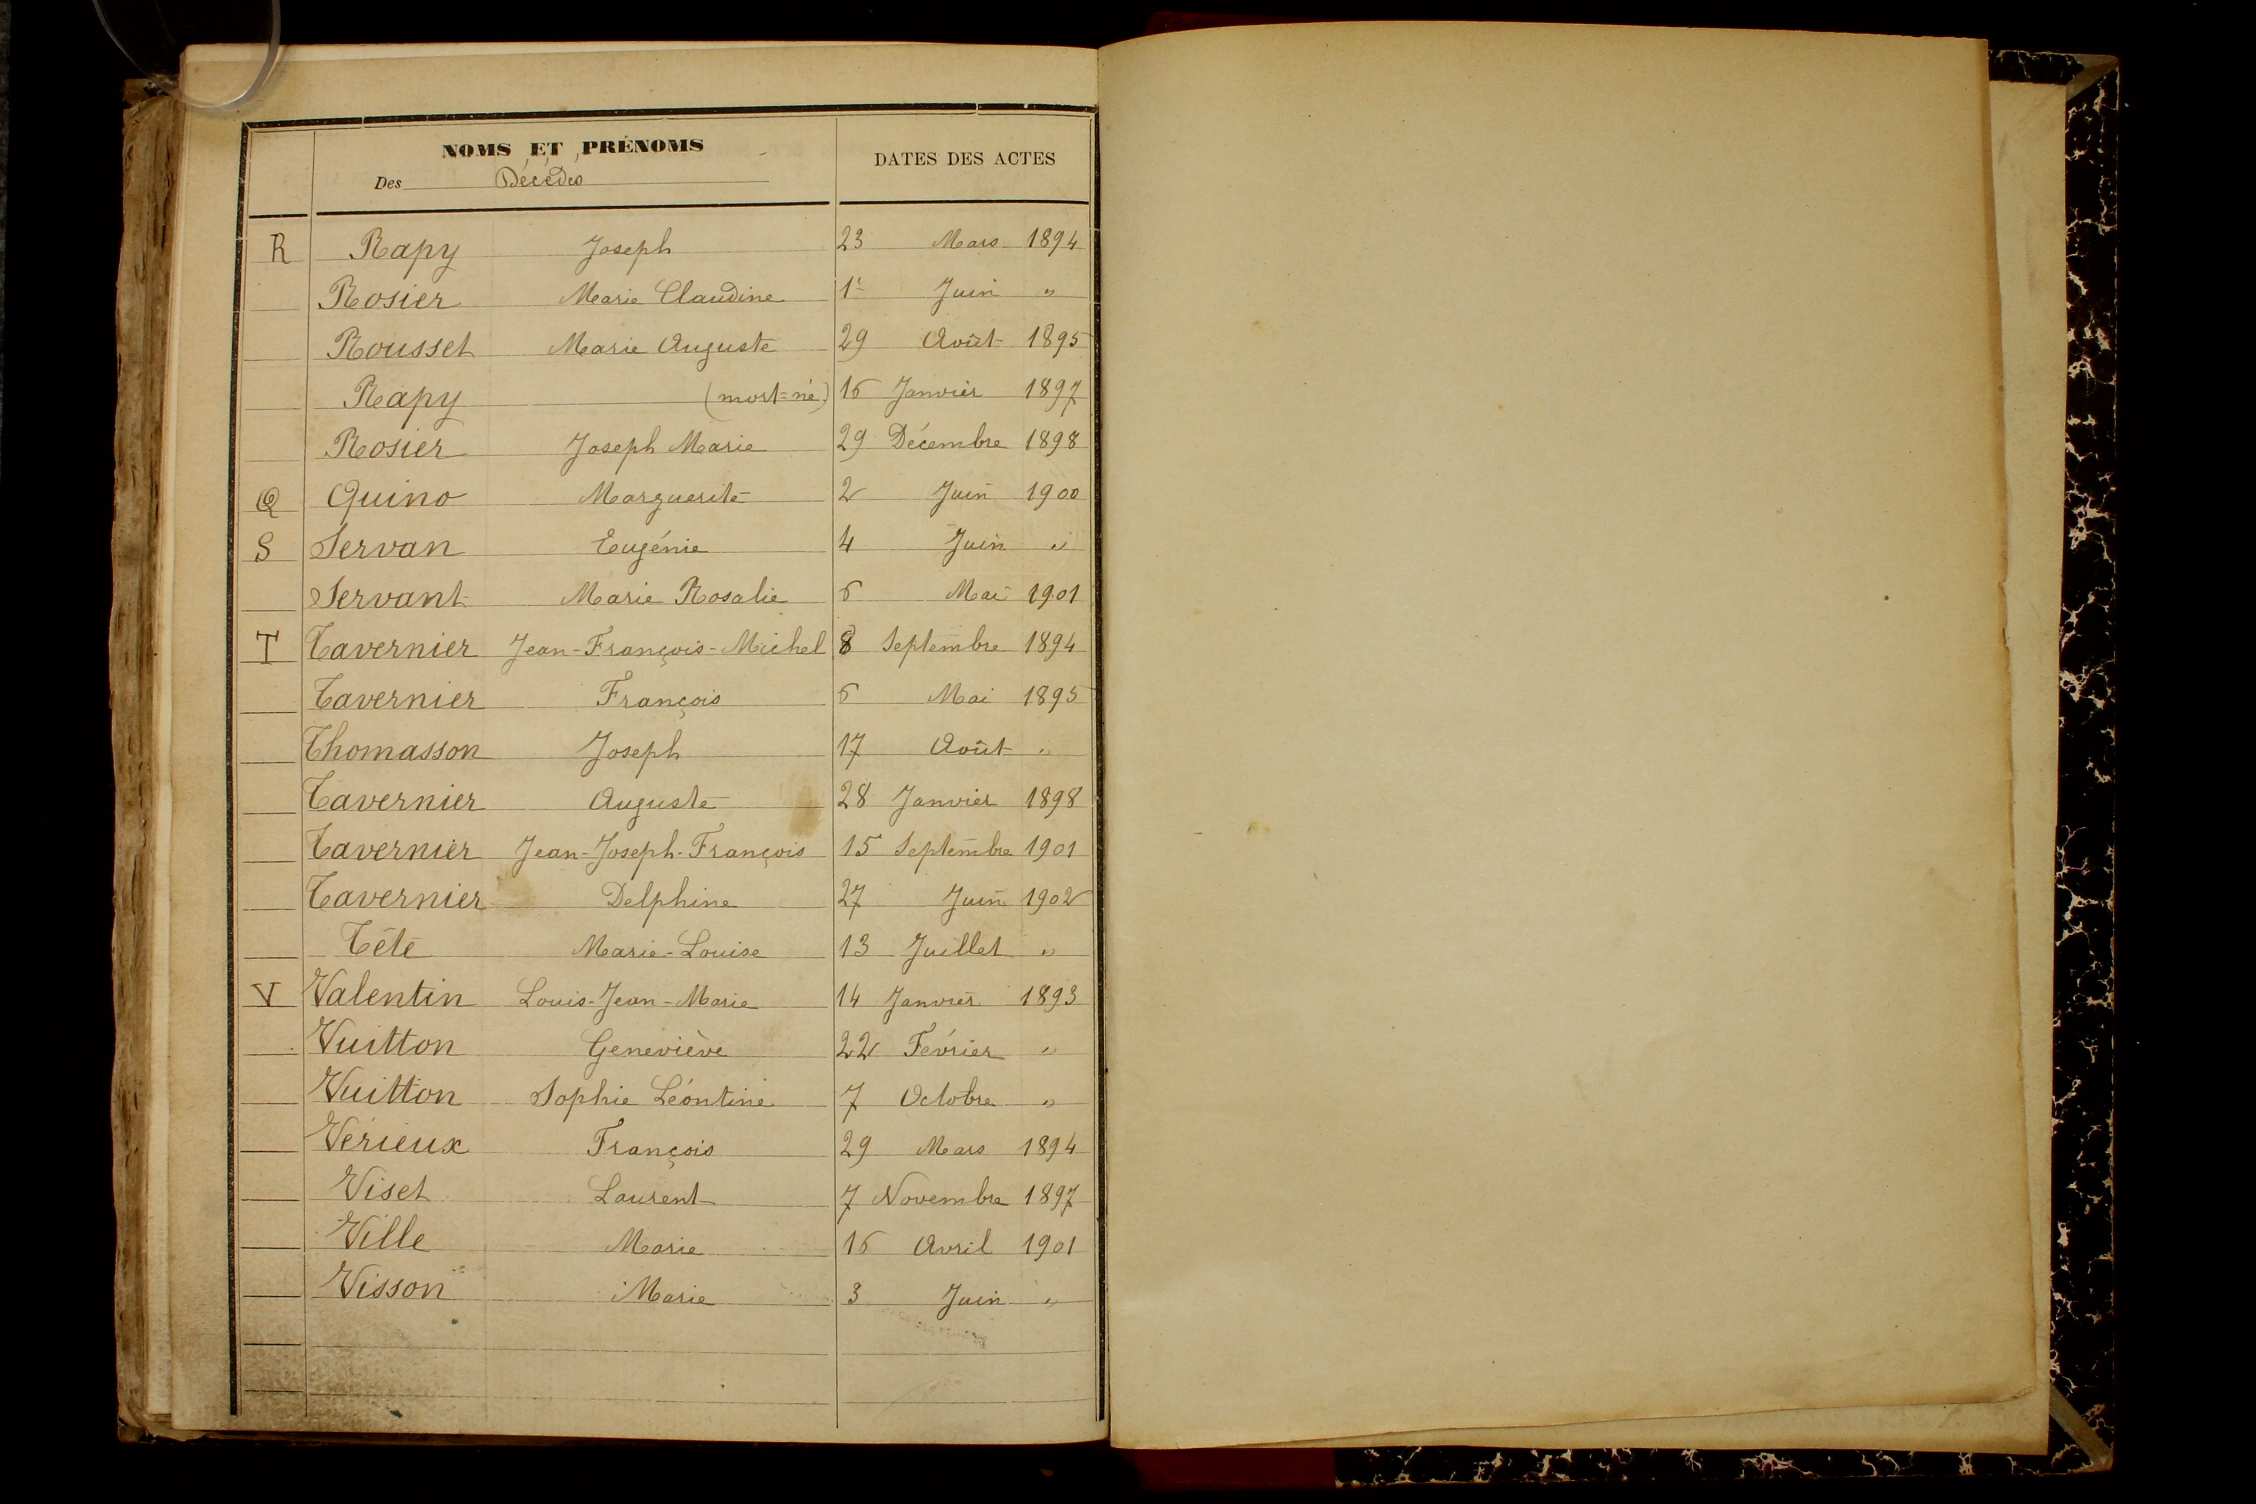 NOMS ET PRÉNOMS
Des Décédés
DATES DES ACTES
R Rapy Joseph 23 Mars 1894
Rosier Marie Claudine 1er Juin "
Rousset Marie Auguste 29 Août 1895
Rapy (mort=né) 16 Janvier 1897
Rosier Joseph Marie 29 Décembre 1898
Q Quino Marguerite 2 Juin 1900
S Servan Eugénie 4 Juin "
Servant Marie Rosalie 6 Mai 1901
T Tavernier Jean-François-Michel 8 Septembre 1894
Tavernier François 6 Mai 1895
Thomasson Joseph 17 Août "
Tavernier Auguste 28 Janvier 1898
Tavernier Jean-Joseph-François 15 Septembre 1901
Tavernier Delphine 27 Juin 1902
Tête Marie-Louise 13 Juillet "
V Valentin Louis-Jean-Marie 14 Janvier 1893
Vuitton Geneviève 22 Février "
Vuitton Sophie Léontine 7 Octobre "
Verieux François 29 Mars 1894
Viset Laurent 7 Novembre 1897
Ville Marie 16 Avril 1901
Visson Marie 3 Juin "